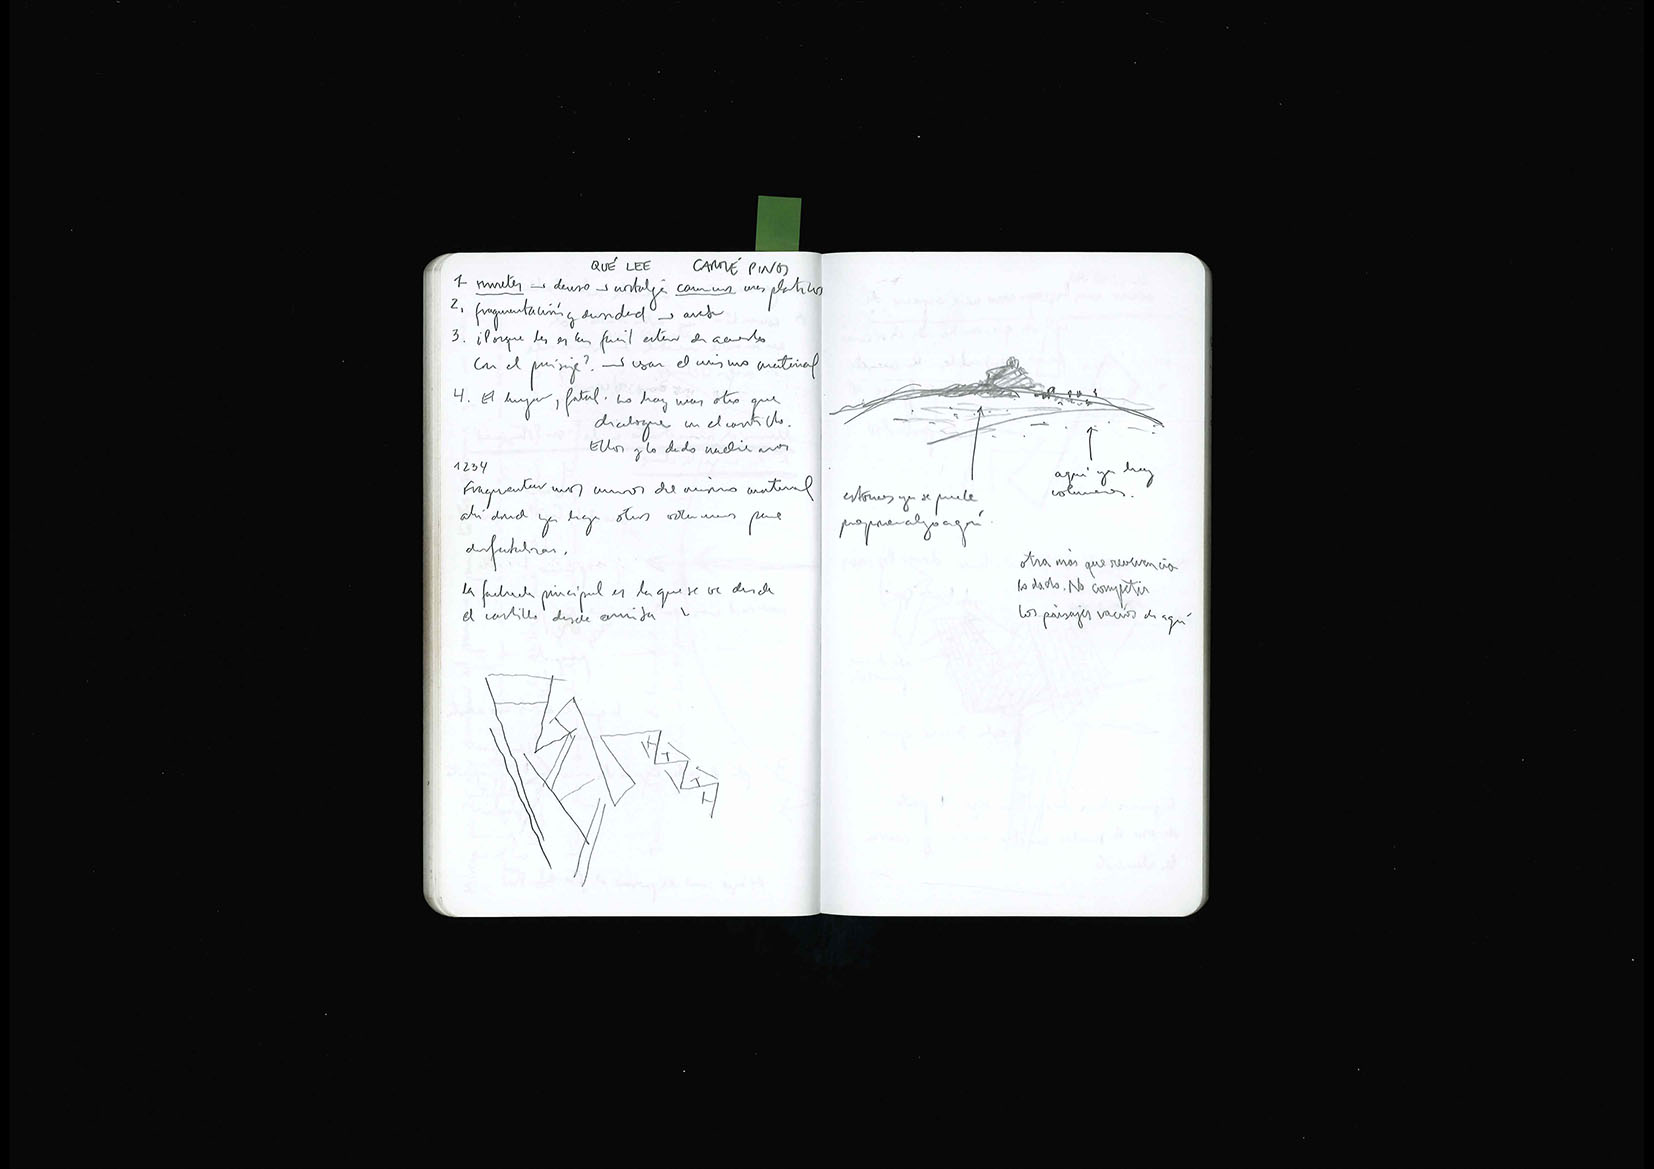 QUÉ LEE CARMÉ PINOS
1 → denso → nostalgia
2. fragmentación y densidad →
3. ¿Porque les es tan facil estar de acuerdo
con el paisaje? → usar el mismo material
4. El lugar, fatal. No hay mas otro que
dialogue con el castillo.
Ellos y lo dado nadie mas
1234
Fragmentar unos muros del mismo material
ahí donde ya haya otros volumenes para
la fachada principal es la que se ve desde
el castillo desde arriba
entonces ya se puede
proponer algo aquí.
aquí ya hay
volumenes.
otra más que reverencia
lo dado. No competir
los paisajes vacíos de aquí